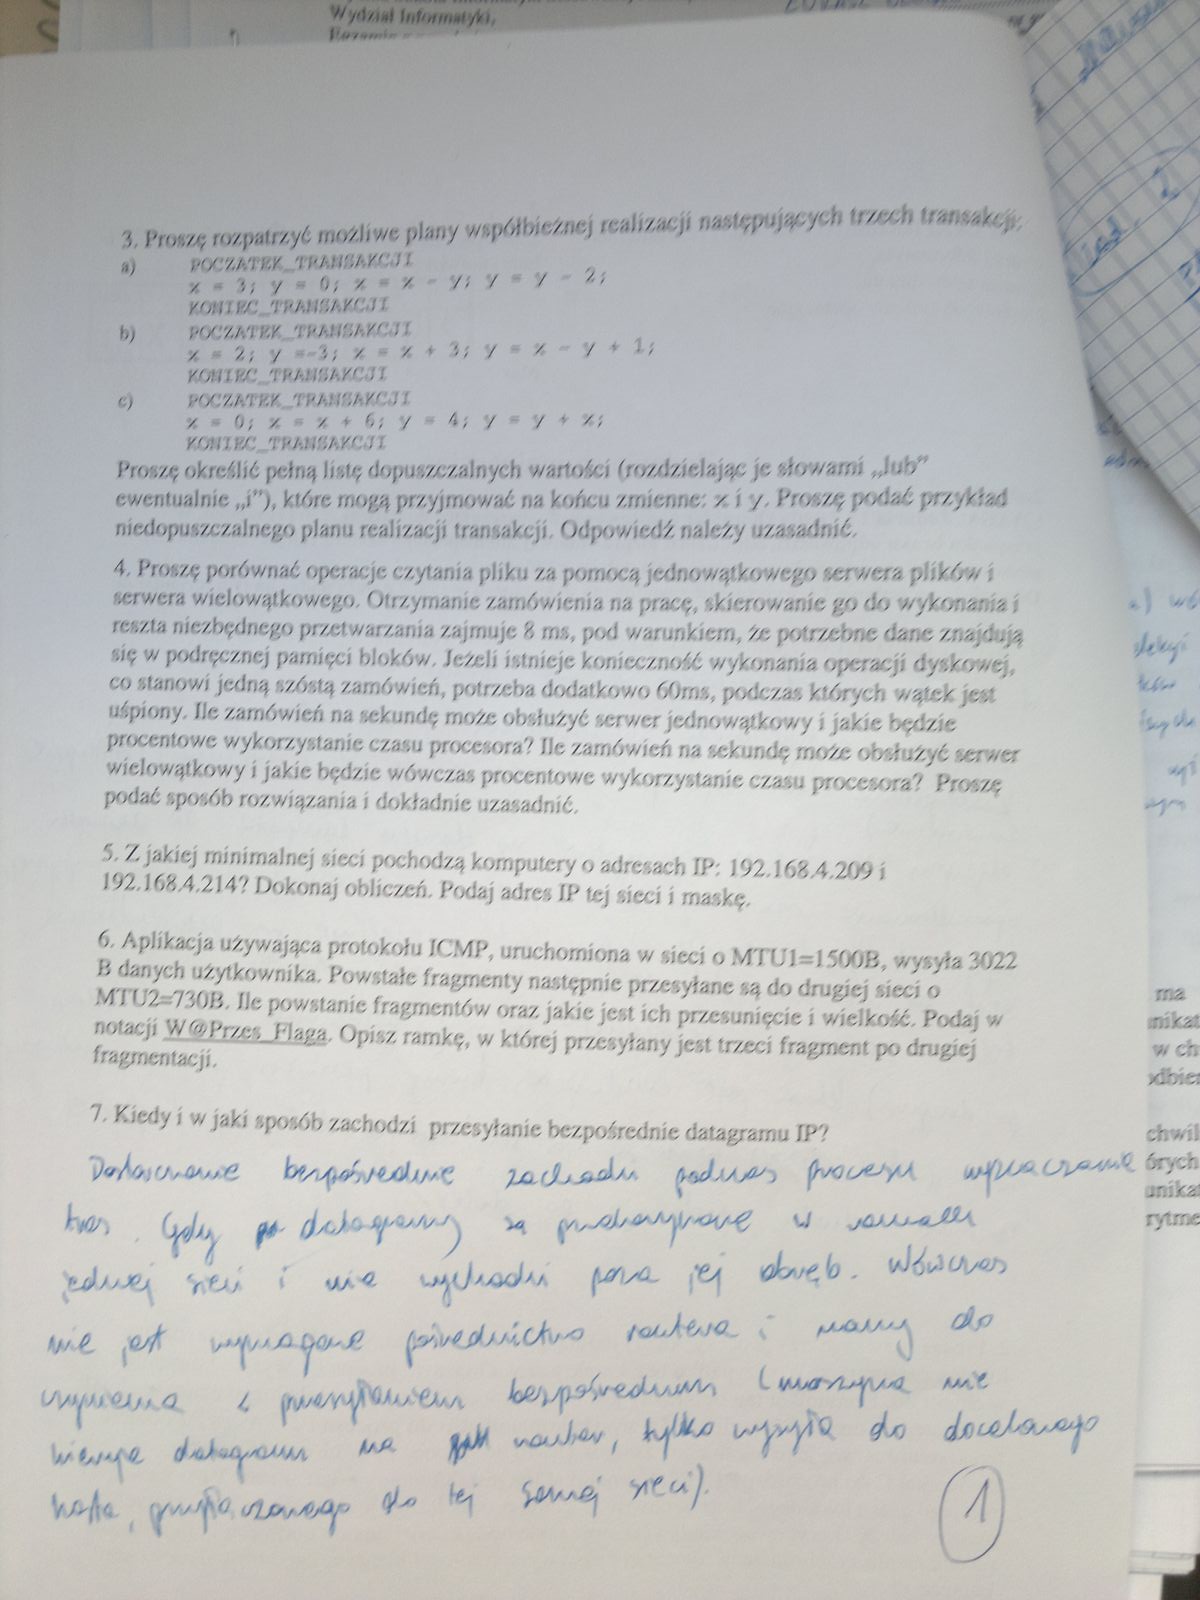 Wydział Informatyki,
3. Proszę rozpatrzyć możliwe plany współbieżnej realizacji następujących trzech transakcji:
a) POCZATEK_TRANSAKCJI
x = 3; y = 0; x = x - y; y = y - 2;
KONIEC_TRANSAKCJI
b) POCZATEK_TRANSAKCJI
x = 2; y =-3; x = x + 3; y = x - y + 1;
KONIEC_TRANSAKCJI
c) POCZATEK_TRANSAKCJI
x = 0; x = x + 6; y = 4; y = y + x;
KONIEC_TRANSAKCJI
Proszę określić pełną listę dopuszczalnych wartości (rozdzielając je słowami „lub”
ewentualnie „i”), które mogą przyjmować na końcu zmienne: x i y. Proszę podać przykład
niedopuszczalnego planu realizacji transakcji. Odpowiedź należy uzasadnić.
4. Proszę porównać operacje czytania pliku za pomocą jednowątkowego serwera plików i
serwera wielowątkowego. Otrzymanie zamówienia na pracę, skierowanie go do wykonania i
reszta niezbędnego przetwarzania zajmuje 8 ms, pod warunkiem, że potrzebne dane znajdują
się w podręcznej pamięci bloków. Jeżeli istnieje konieczność wykonania operacji dyskowej,
co stanowi jedną szóstą zamówień, potrzeba dodatkowo 60ms, podczas których wątek jest
uśpiony. Ile zamówień na sekundę może obsłużyć serwer jednowątkowy i jakie będzie
procentowe wykorzystanie czasu procesora? Ile zamówień na sekundę może obsłużyć serwer
wielowątkowy i jakie będzie wówczas procentowe wykorzystanie czasu procesora? Proszę
podać sposób rozwiązania i dokładnie uzasadnić.
5. Z jakiej minimalnej sieci pochodzą komputery o adresach IP: 192.168.4.209 i
192.168.4.214? Dokonaj obliczeń. Podaj adres IP tej sieci i maskę.
6. Aplikacja używająca protokołu ICMP, uruchomiona w sieci o MTU1=1500B, wysyła 3022
B danych użytkownika. Powstałe fragmenty następnie przesyłane są do drugiej sieci o
MTU2=730B. Ile powstanie fragmentów oraz jakie jest ich przesunięcie i wielkość. Podaj w
notacji W@Przes_Flaga. Opisz ramkę, w której przesyłany jest trzeci fragment po drugiej
fragmentacji.
7. Kiedy i w jaki sposób zachodzi przesyłanie bezpośrednie datagramu IP?
Dostarczanie bezpośrednie zachodzi podczas procesu wyznaczania
tras. Gdy datagramy są przekazywane w ramach
jednej sieci i nie wychodzi poza jej obręb. Wówczas
nie jest wymagane pośrednictwo routera i mamy do
czynienia z przesyłaniem bezpośrednim (maszyna nie
kieruje datagramu na router, tylko wysyła do docelowego
hosta, przyłączonego do tej samej sieci).
1